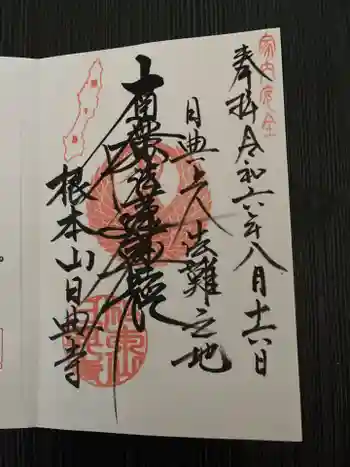 家内安全
奉拝 令和六年八月十六日
日典上人法難之地
南無妙法蓮華経
根本山日典寺